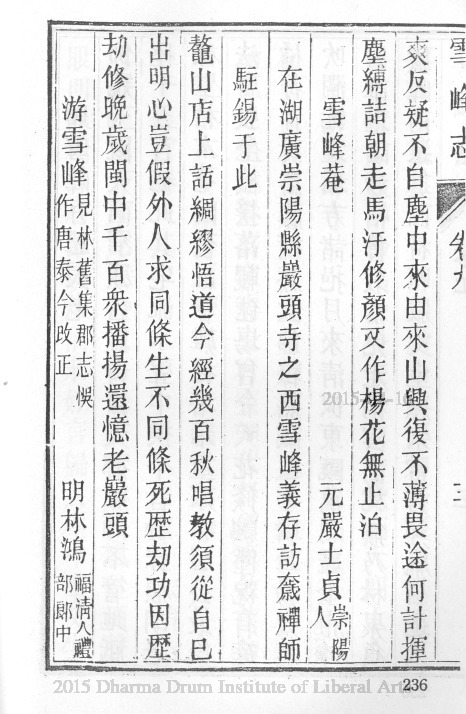 雪峰志 卷九 三
爽反疑不自塵中來由來山興復不薄畏途何計揮
塵縛詰朝走馬汙修顏又作楊花無止泊
雪峰菴 元嚴士貞崇陽人
在湖廣崇陽縣巖頭寺之西雪峰義存訪奯禪師
駐錫于此
鼇山店上話綢繆悟道今經幾百秋唱教須從自己
出明心豈假外人求同條生不同條死歷劫功因歷
劫修晚歲閩中千百衆播揚還憶老巖頭
游雪峰見林舊集郡志悞作唐泰今改正 明林鴻福清人禮部郎中
236
2015 Dharma Drum Institute of Liberal Arts